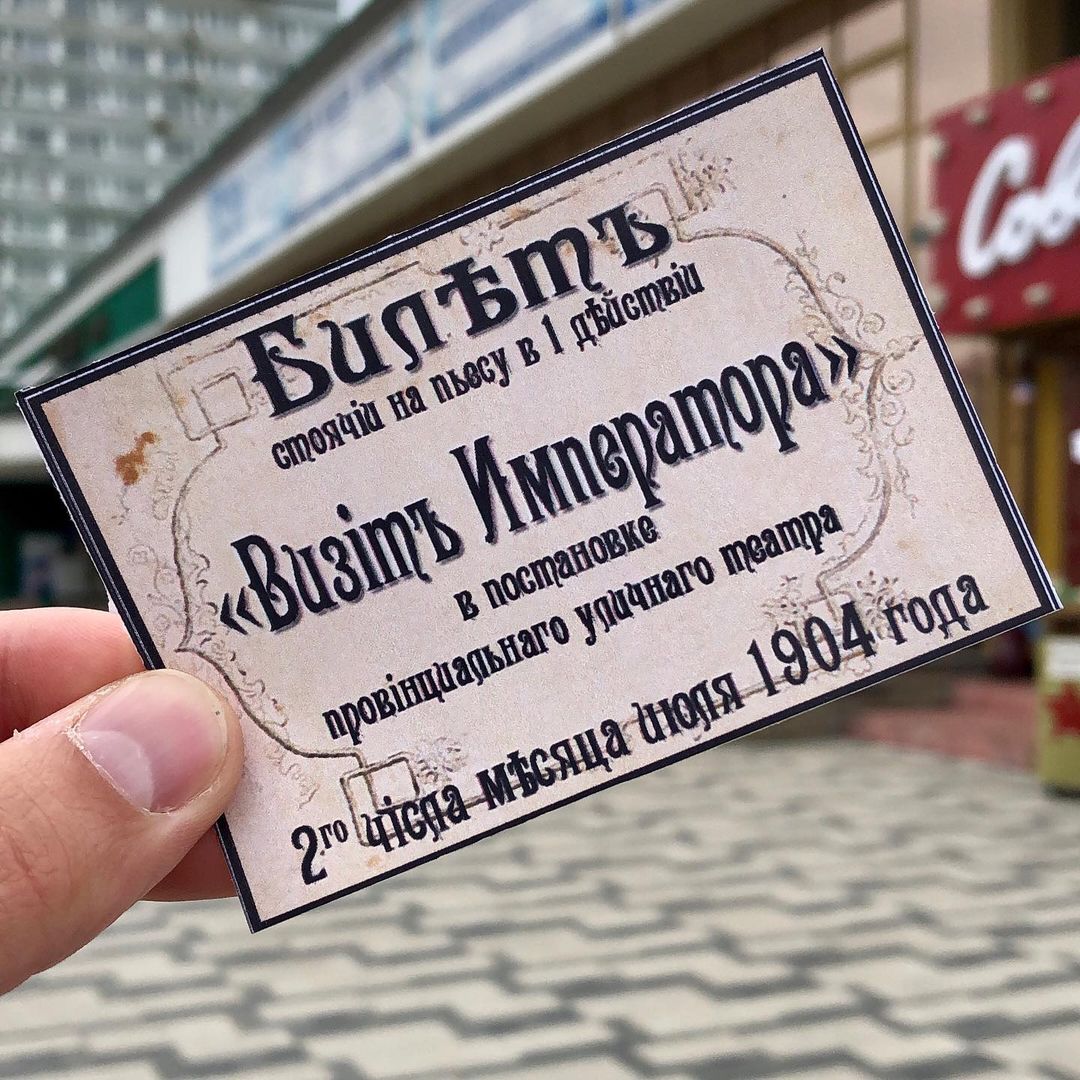 Билѣтъ
стоячiй на пьесу в 1 дѣйствiи
«Визiтъ Императора»
в постановке
провiнциальнаго уличнаго театра
2го чiсла мѣсяца июля 1904 года
Cob